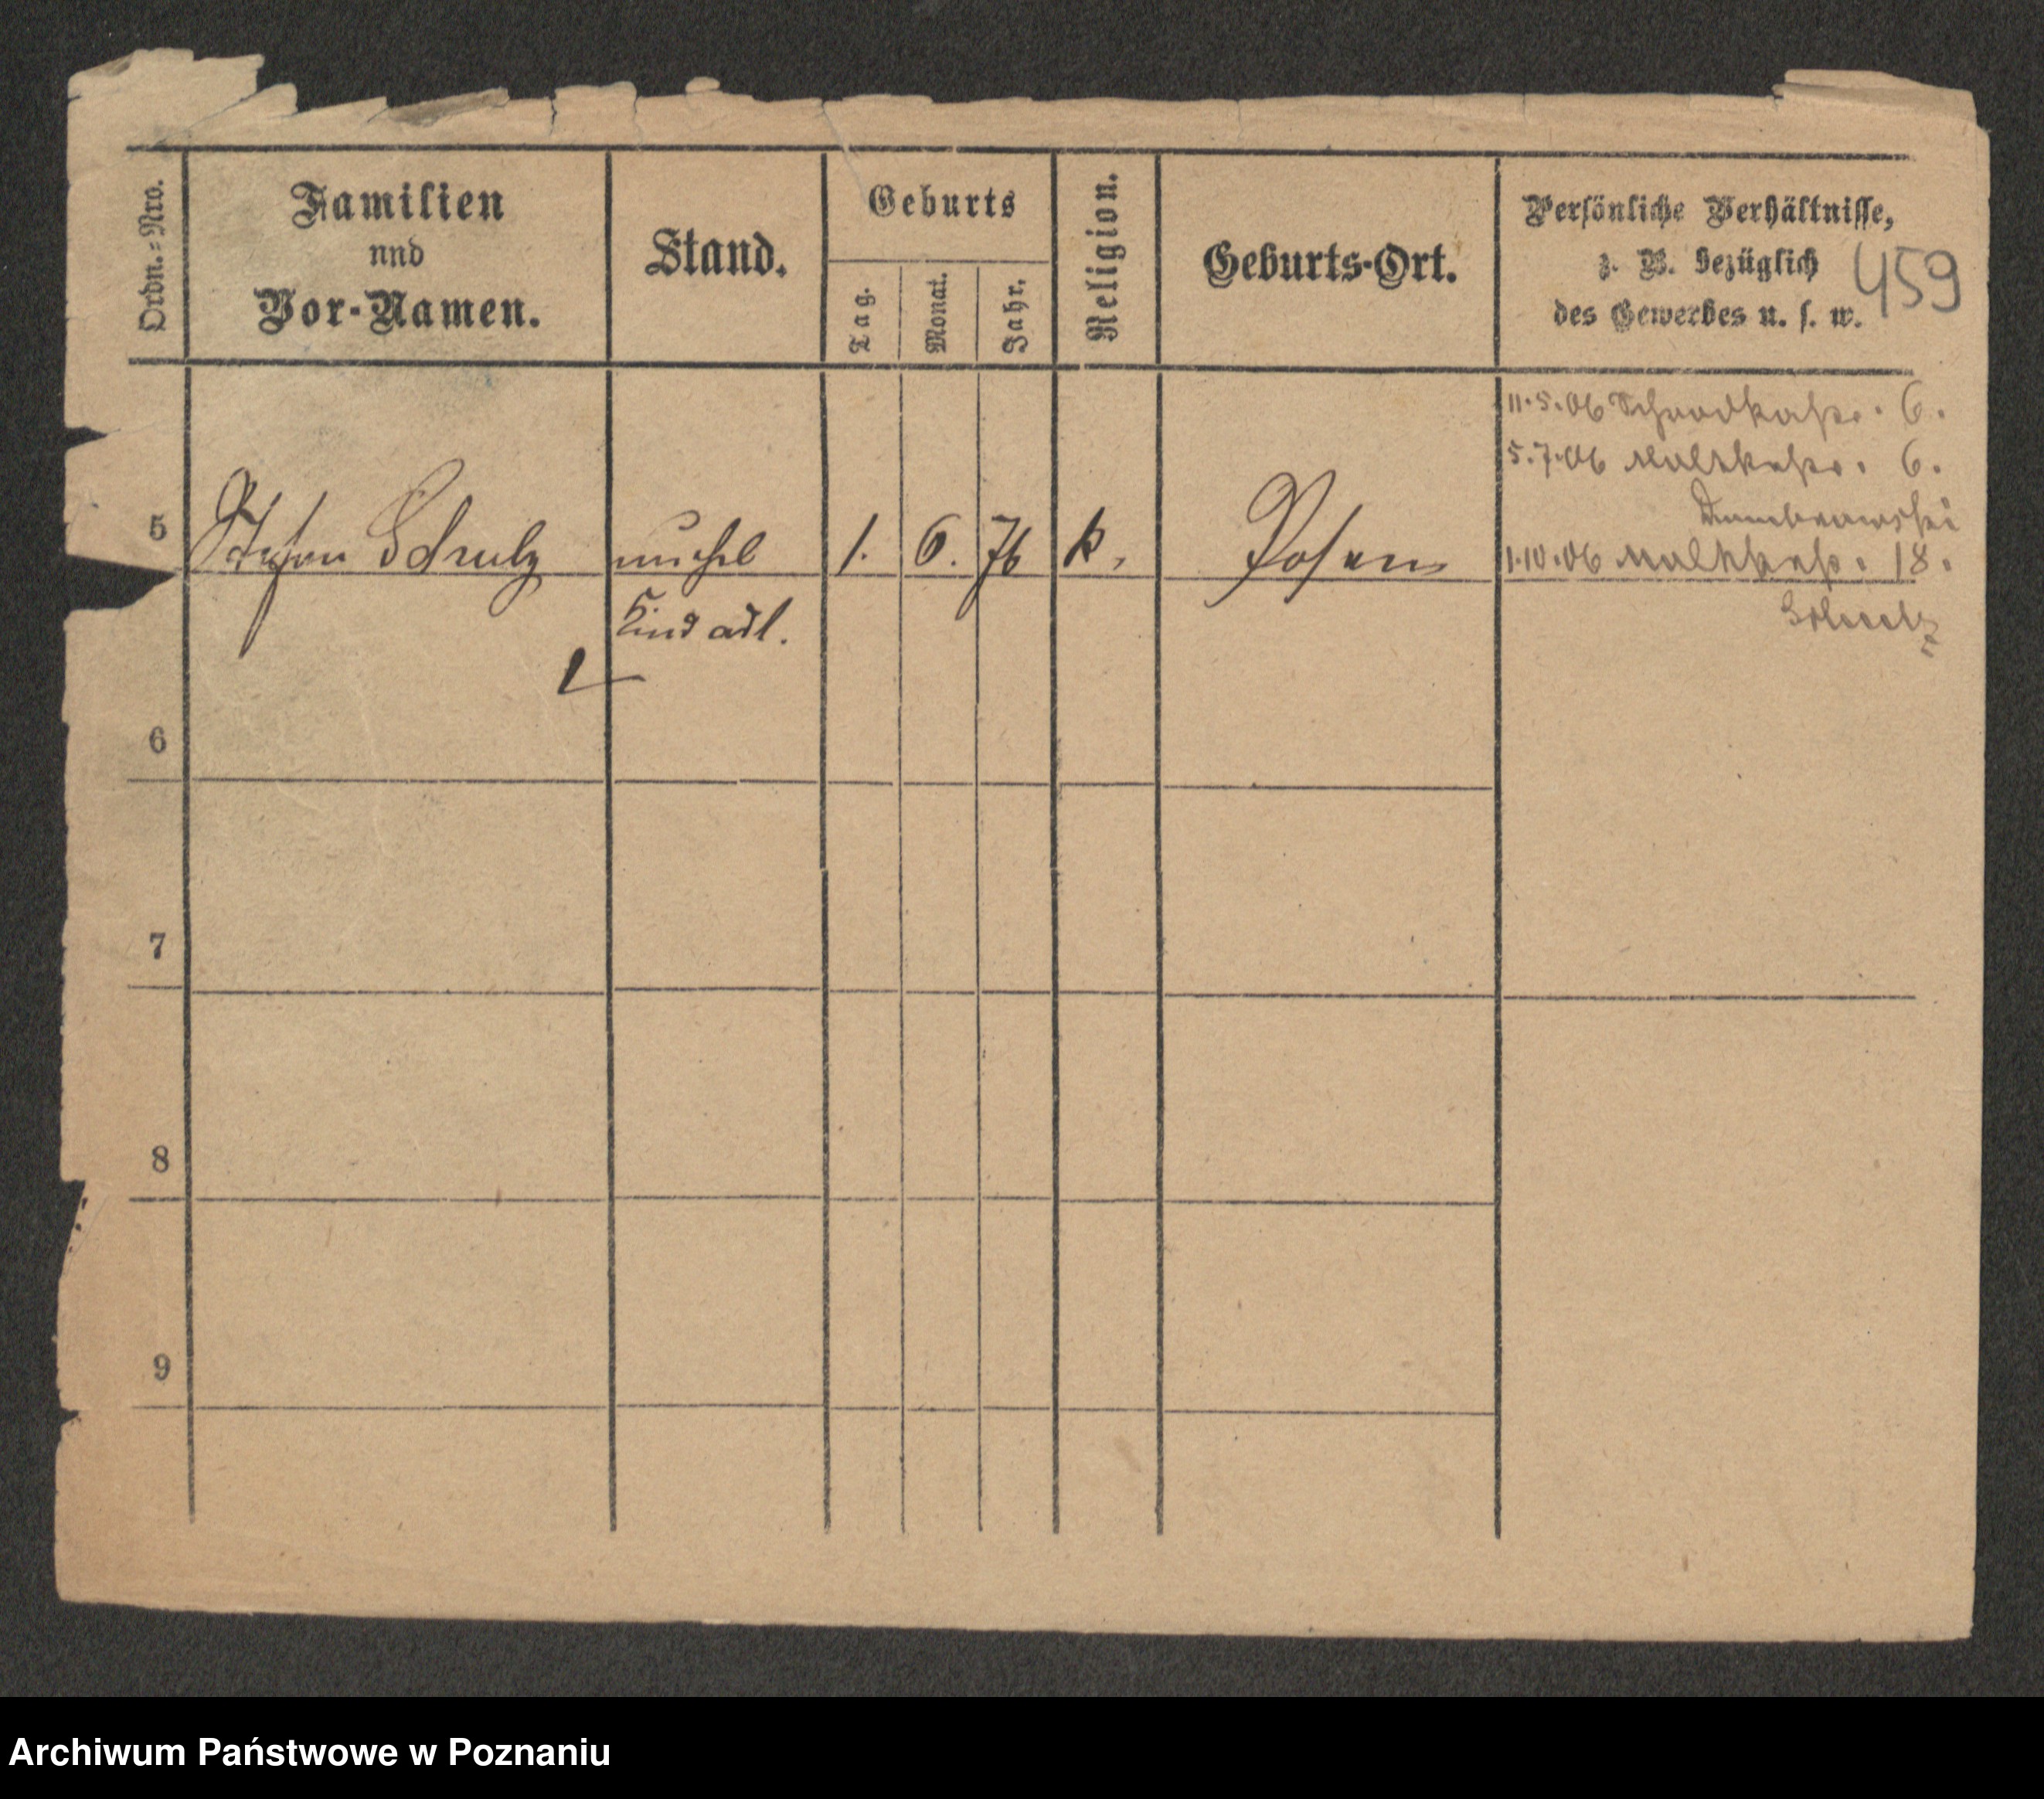 Ordn.-Nro.
Familien
und
Vor-Namen.
Stand.
Geburts
Tag.
Monat.
Jahr.
Religion.
Geburts-Ort.
Persönliche Verhältnisse,
z. B. bezüglich
des Gewerbes u. s. w.
459
11.5.06 6.
5.7.06 6.
5 Stefan Schulz unehel 1. 6. 76 k. Posen
1.10.06 18.
Kind adl.
6
7
8
9
Archiwum Państwowe w Poznaniu